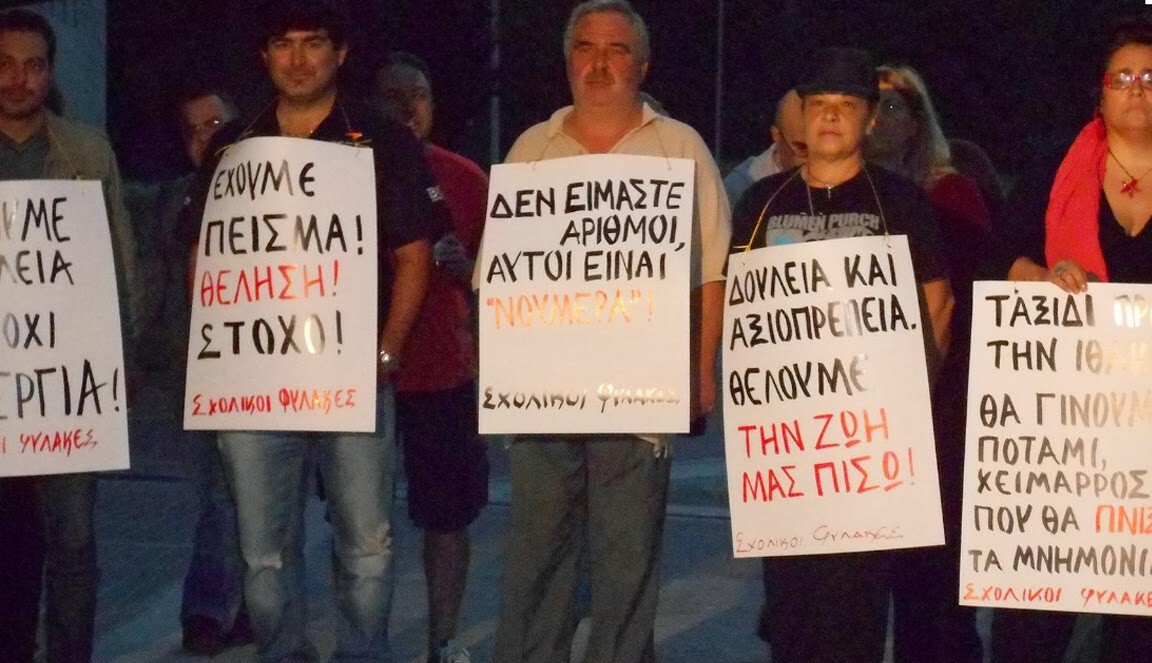 ΟΧΙ
ΣΧΟΛΙΚΟΙ ΦΥΛΑΚΕΣ
ΕΧΟΥΜΕ
ΠΕΙΣΜΑ!
ΘΕΛΗΣΗ!
ΣΤΟΧΟ!
ΣΧΟΛΙΚΟΙ ΦΥΛΑΚΕΣ
ΔΕΝ ΕΙΜΑΣΤΕ
ΑΡΙΘΜΟΙ,
ΑΥΤΟΙ ΕΙΝΑΙ
"ΝΟΥΜΕΡΑ"!
ΣΧΟΛΙΚΟΙ ΦΥΛΑΚΕΣ
BLUMEN PURCH
ΔΟΥΛΕΙΑ ΚΑΙ
ΑΞΙΟΠΡΕΠΕΙΑ.
ΘΕΛΟΥΜΕ
ΤΗΝ ΖΩΗ
ΜΑΣ ΠΙΣΩ!
ΣΧΟΛΙΚΟΙ ΦΥΛΑΚΕΣ
ΤΑΞΙΔΙ
ΤΗΝ
ΘΑ ΓΙΝΟΥΜ
ΠΟΤΑΜΙ,
ΧΕΙΜΑΡΡΟΣ
ΠΟΥ ΘΑ ΠΝΙΞ
ΤΑ ΜΝΗΜΟΝΙ
ΣΧΟΛΙΚΟΙ ΦΥΛΑΚΕ